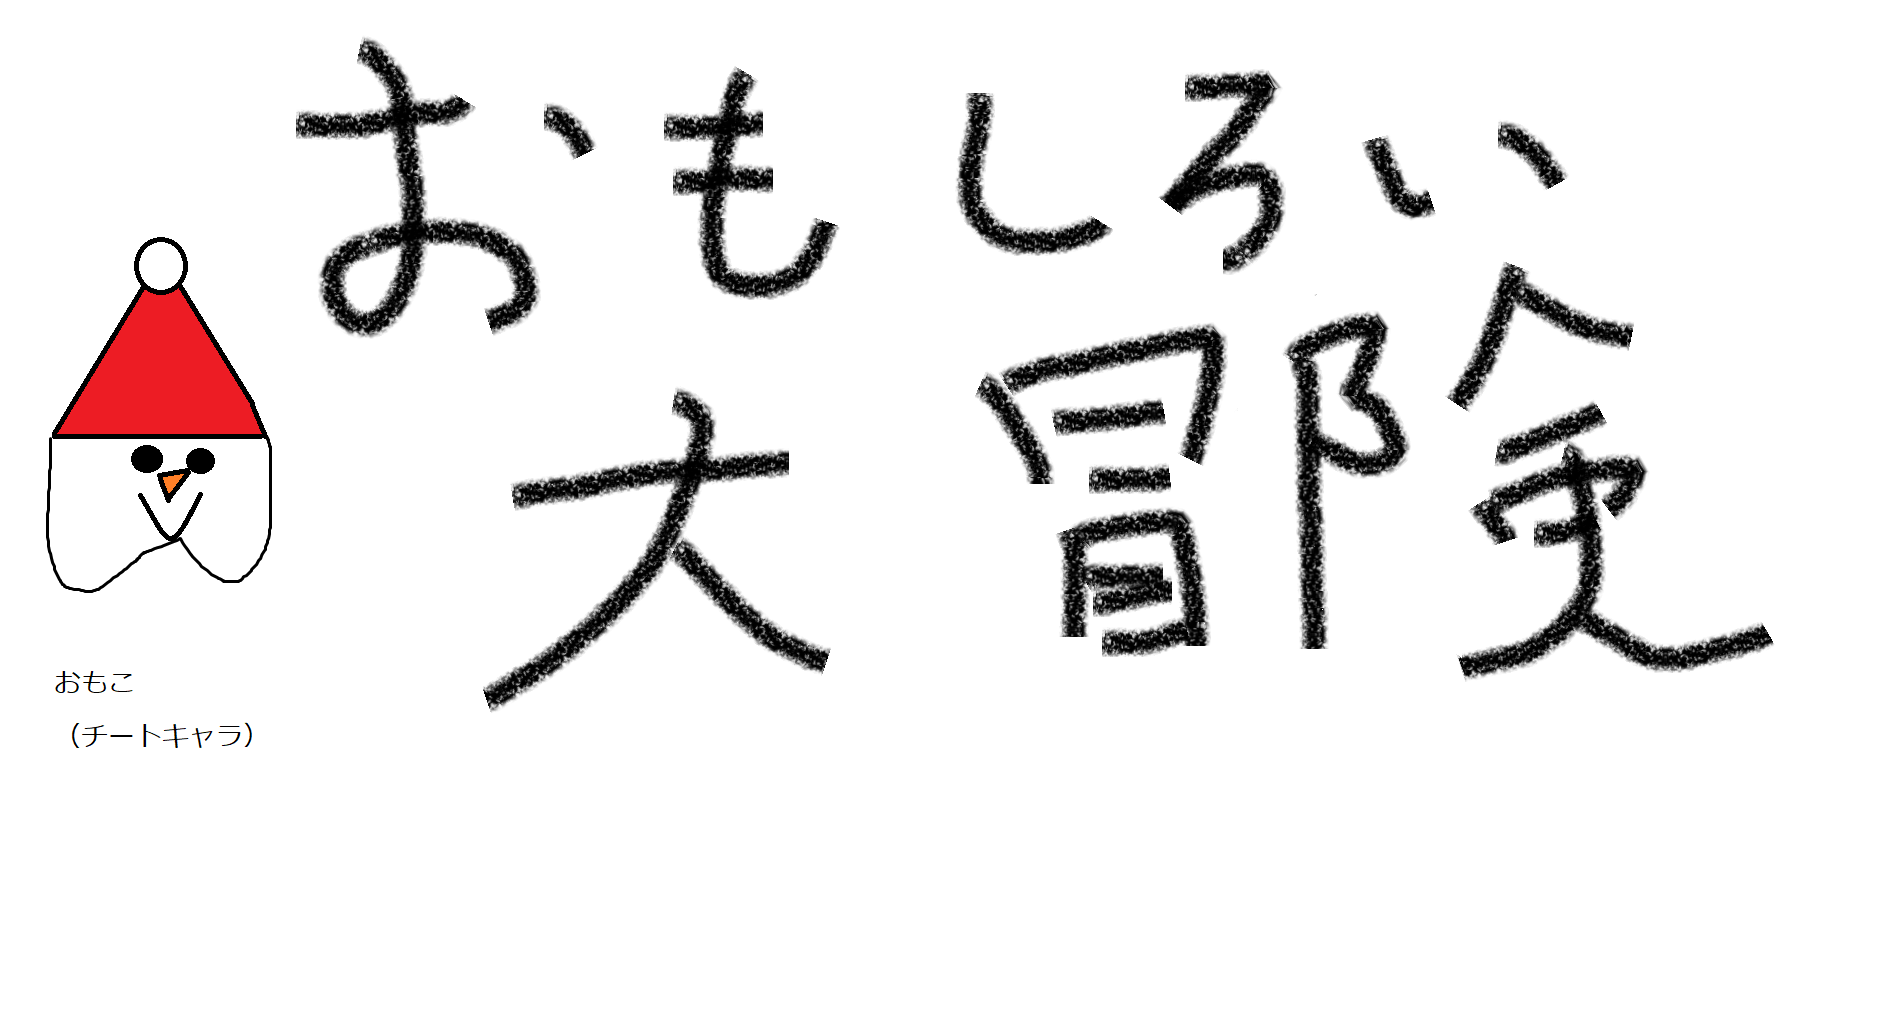 おもしろい
大冒険
おもこ
（チートキャラ）